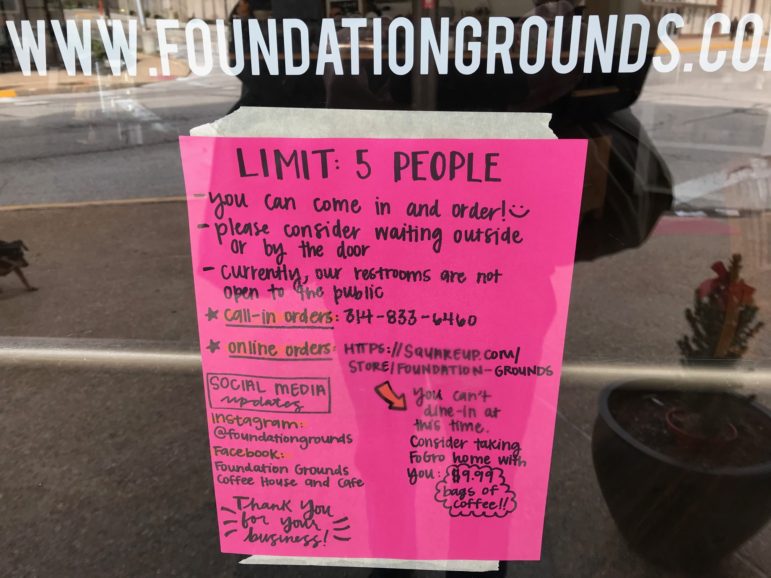 WWW.FOUNDATIONGROUNDS.CO
LIMIT: 5 PEOPLE
- you can come in and order!
- please consider waiting outside
or by the door
- currently, our restrooms are not
open to the public
★ call-in orders: 314-833-6460
★ online orders: HTTPS://SQUAREUP.COM/
STORE/FOUNDATION-GROUNDS
SOCIAL MEDIA
updates
Instagram:
@foundationgrounds
Facebook:
Foundation Grounds
Coffee House and Cafe
Thank You
for your
business!
You can't
dine-in at
this time.
Consider taking
FoGro home with
you: $9.99
bags of
coffee!!